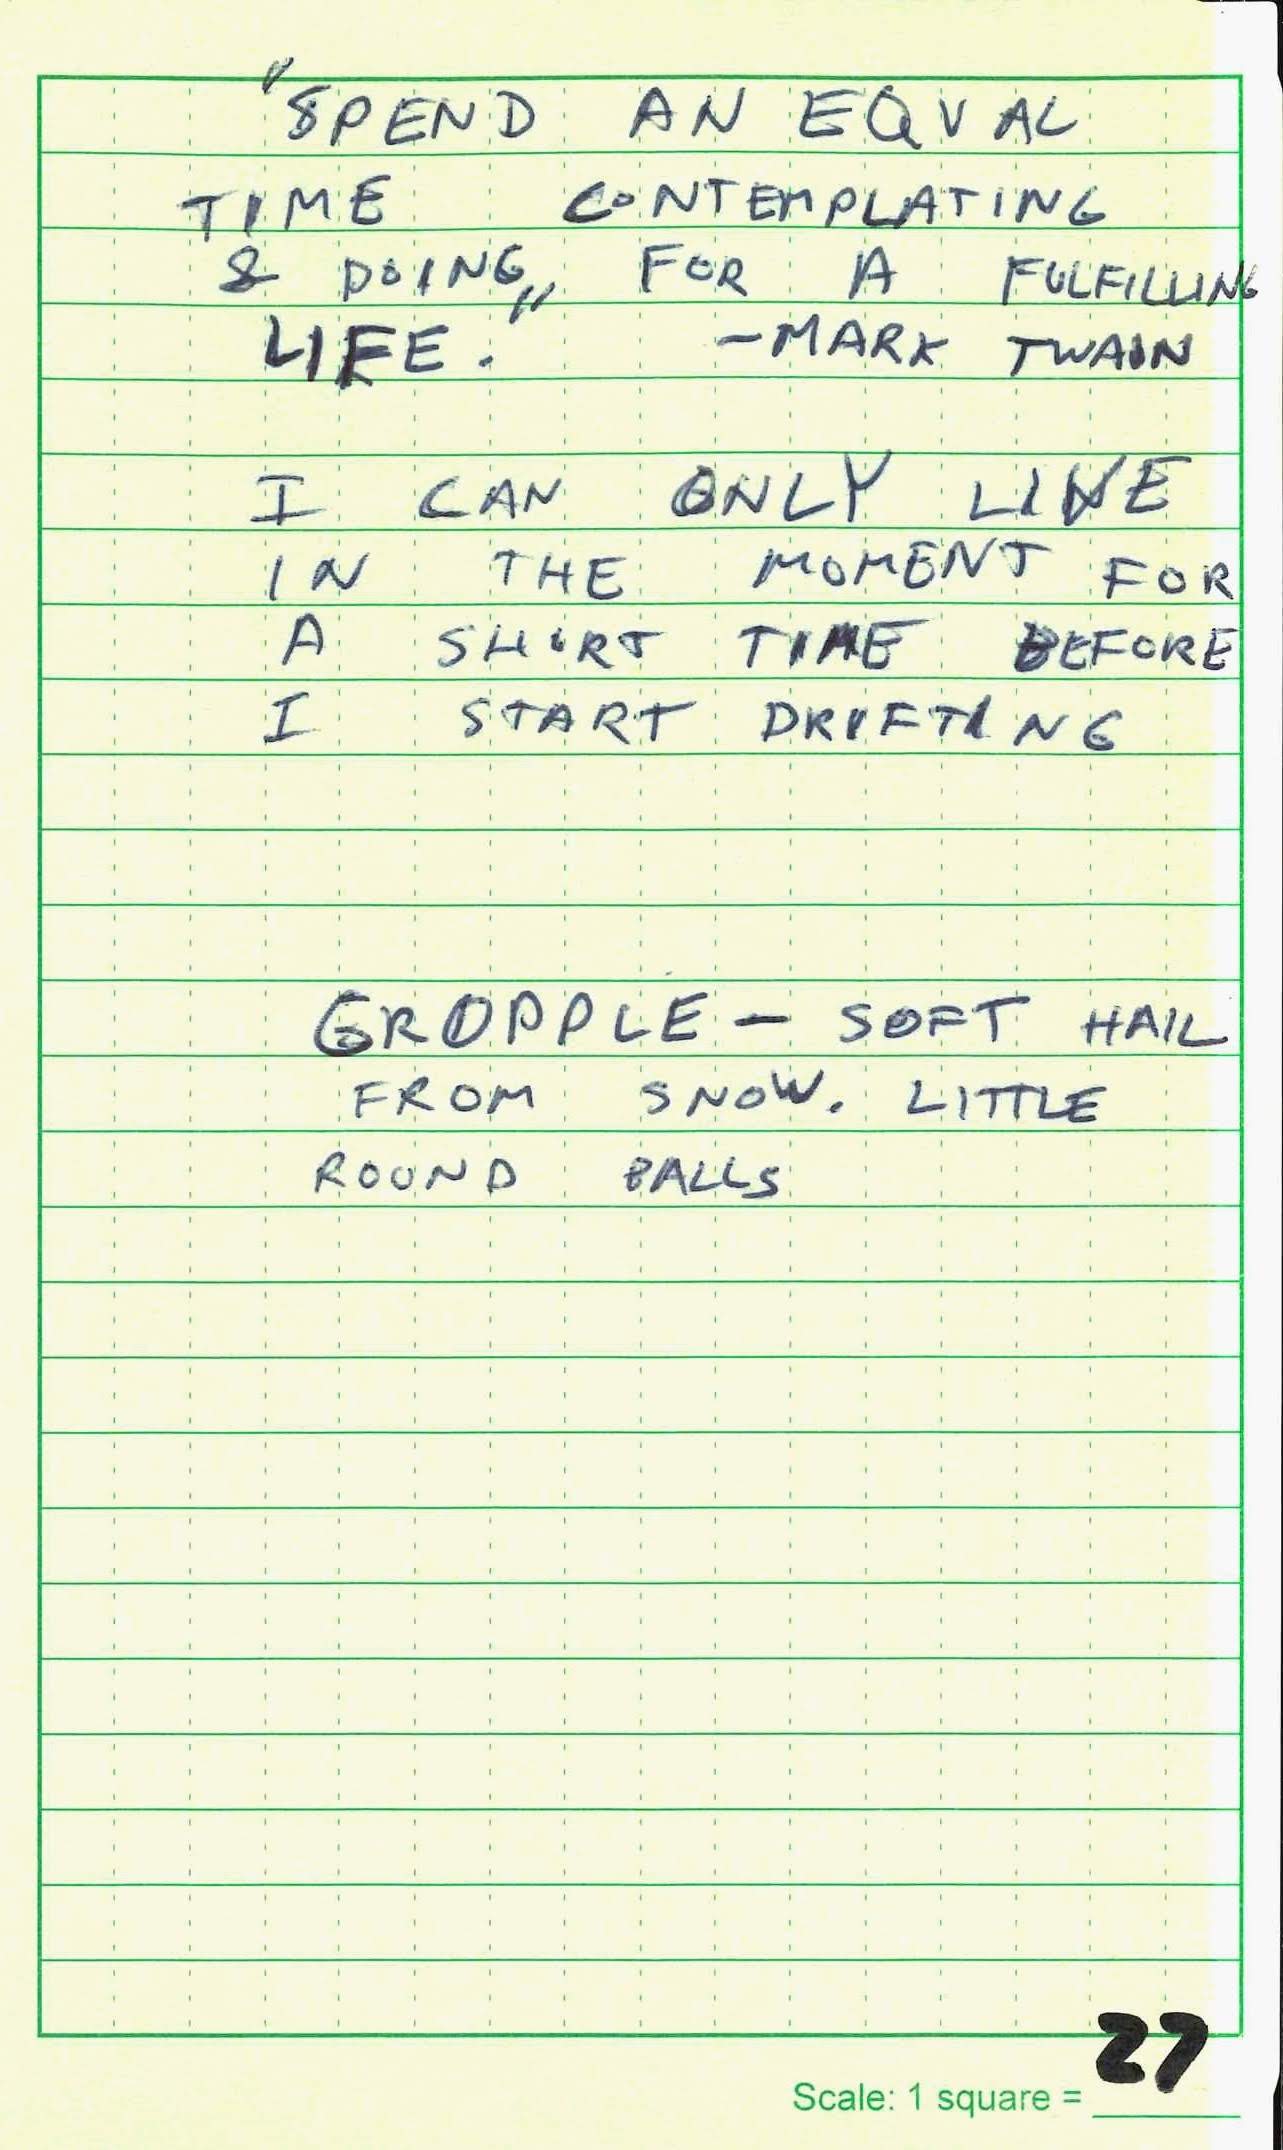 "SPEND AN EQUAL
TIME CONTEMPLATING
& DOING, FOR A FULFILLING
LIFE." -MARK TWAIN
I CAN ONLY LIVE
IN THE MOMENT FOR
A SHORT TIME BEFORE
I START DRIFTING
GROPPLE - SOFT HAIL
FROM SNOW. LITTLE
ROUND BALLS
27
Scale: 1 square =